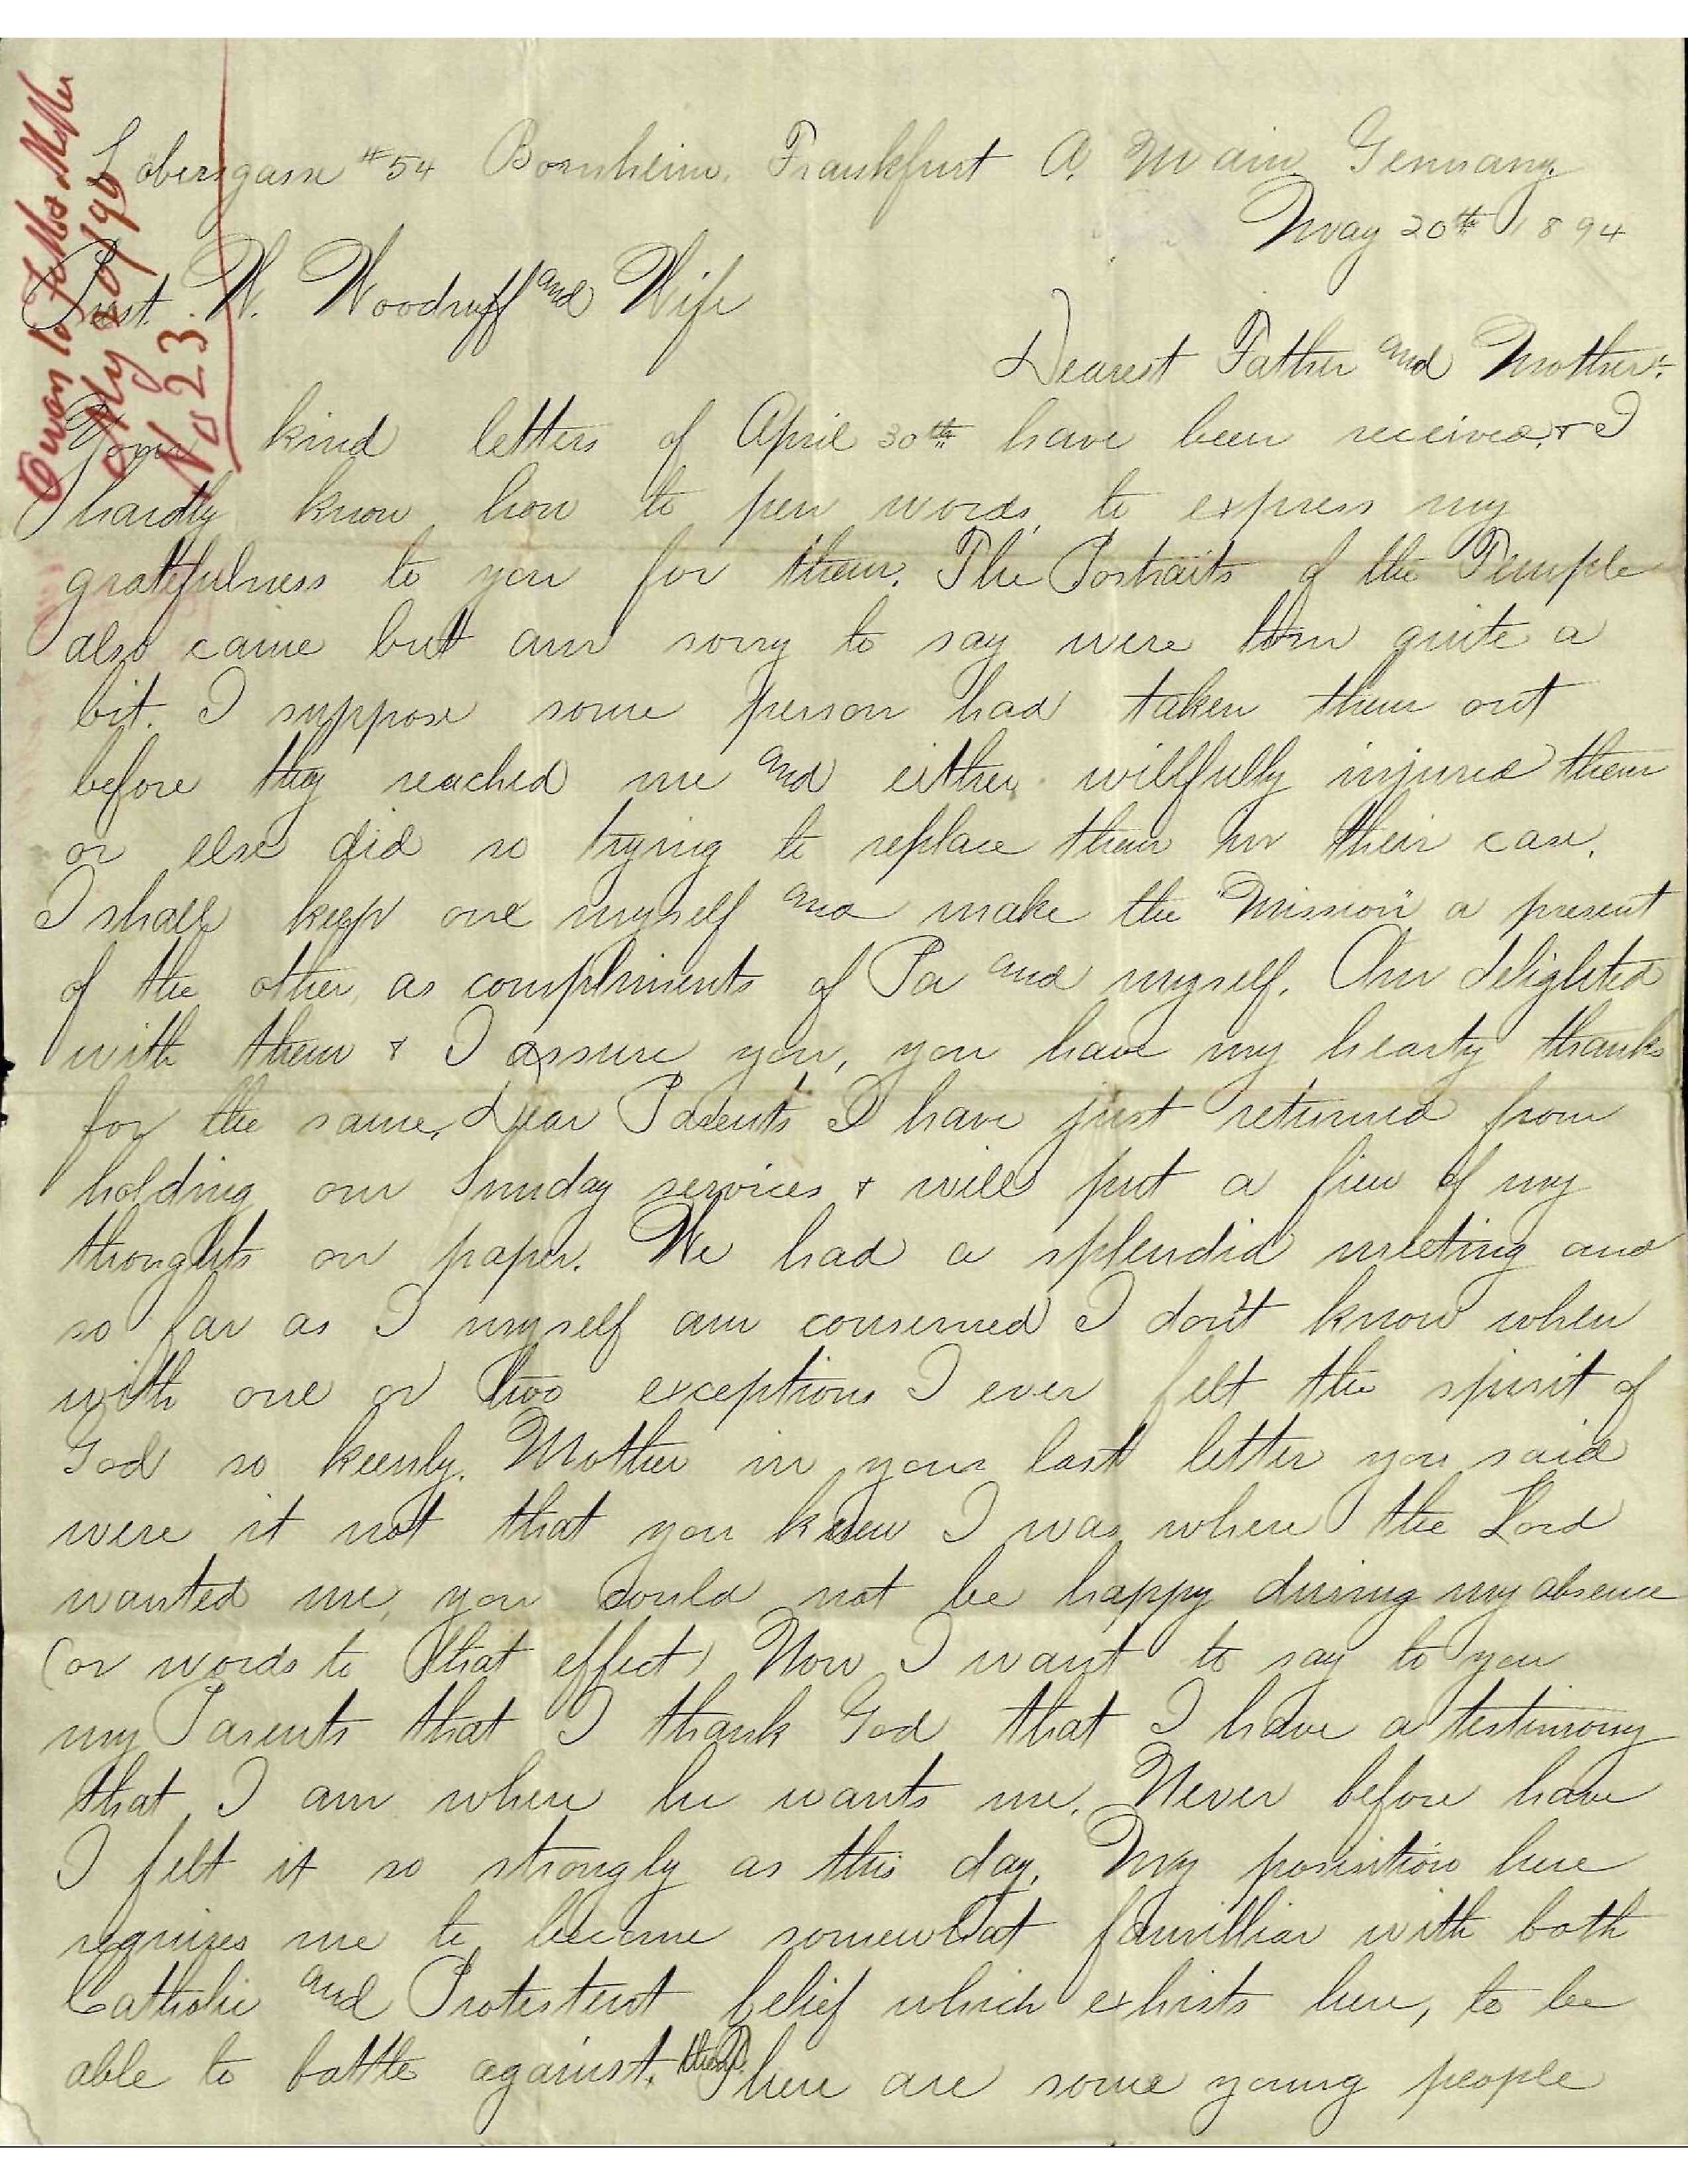 Owen to Father & Mother
May 20/94
No 23
Lobersgasse #54 Bornheim, Frankfurt A. Main Germany.
May 20th 1894
Prest. W. Woodruff and Wife
Dearest Father and Mother:-
Your kind letters of April 30th have been received, & I
hardly know how to pen words, to express my
gratefulness to you for them. The Portraits of the Temple
also came but am sorry to say were torn quite a
bit. I suppose some person had taken them out
before they reached me and either willfully injured them
or else did so trying to replace them in their case.
I shall keep one myself and make the "Mission" a present
of the other, as compliments of Pa and myself. Am delighted
with them & I assure you, you have my hearty thanks
for the same. Dear Parents I have just returned from
holding our Sunday services & will put a few of my
thoughts on paper. We had a splendid meeting and
so far as I myself am conserned I don't know when
with one or two exceptions I ever felt the spirit of
God so keenly. Mother in your last letter you said
were it not that you knew I was where the Lord
wanted me, you could not be happy during my absence
(or words to that effect) Now I want to say to you
my Parents that I thank God that I have a testimony
that I am where he wants me. Never before have
I felt it so strongly as this day. My posisition here
requires me to become somewhat familliar with both
Catholic and Protestent belief which exhists here, to be
able to battle against. There are some young people